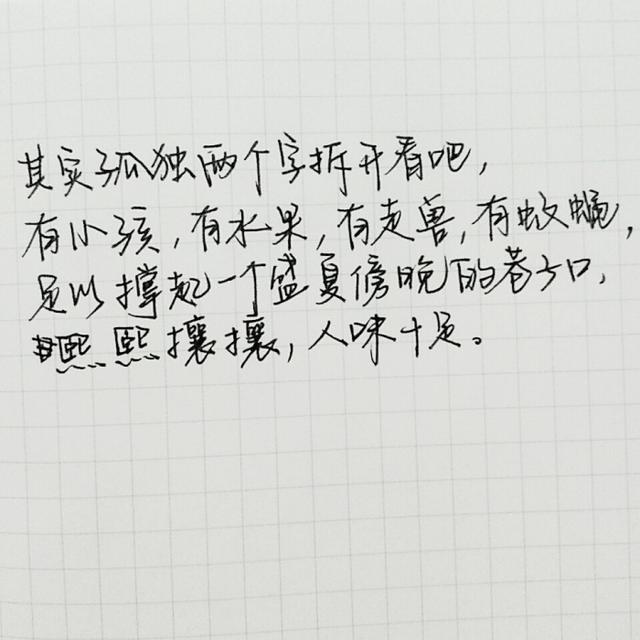 其实孤独两个字拆开看吧,
有小孩,有水果,有走兽,有蚊蝇,
足以撑起一个盛夏傍晚的巷子口,
熙熙攘攘,人味十足。